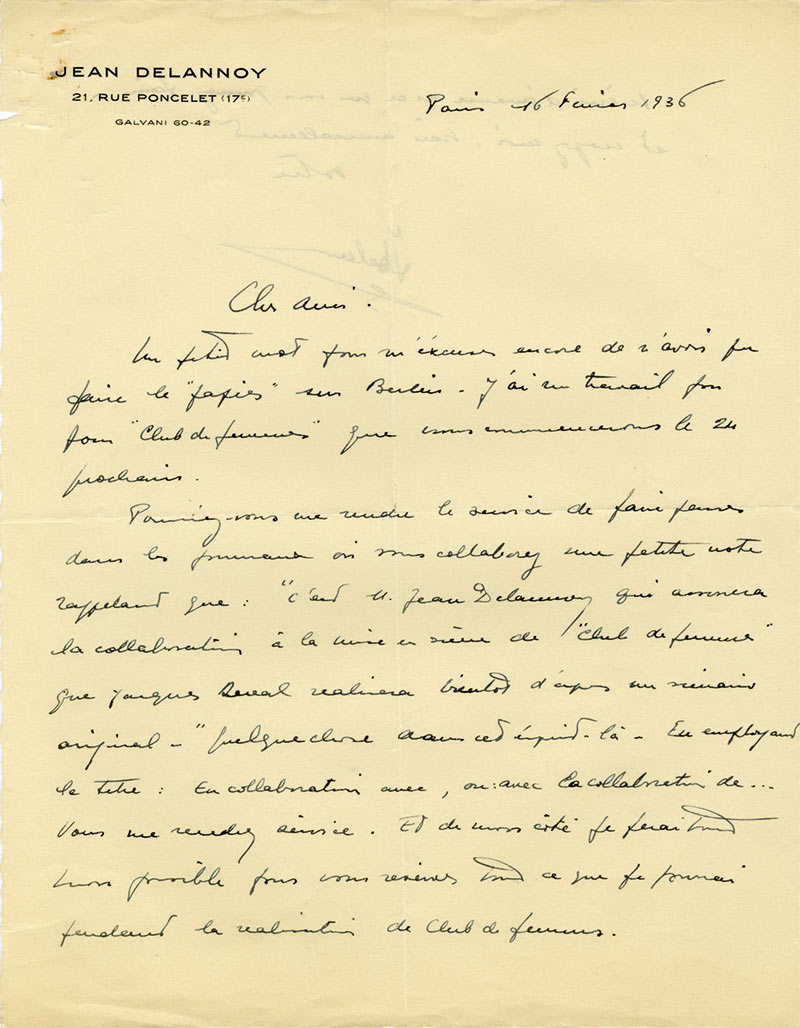 JEAN DELANNOY
21, RUE PONCELET (17E)
GALVANI 60-42
Paris 16 Février 1936
Cher ami.
Un petit mot pour m'excuser encore de n'avoir pu
faire le "papier" sur Berlin. J'ai un travail fou
pour "Club de femmes" que nous commencerons le 24
prochain.
Pourriez-vous me rendre le service de faire passer
dans les journaux où vous collaborez une petite note
rappelant que : "c'est M. Jean Delannoy qui assurera
la collaboration à la mise en scène de "Club de femmes"
que Jacques Deval realisera bientôt d'après un scénario
original - " quelque chose dans cet esprit-là - En employant
le titre : En collaboration avec, ou : avec la collaboration de...
Vous me rendrez service. Et de mon côté je ferai tout
mon possible pour vous réserver tout ce que je pourrai
pendant la realisation de Club de femmes.